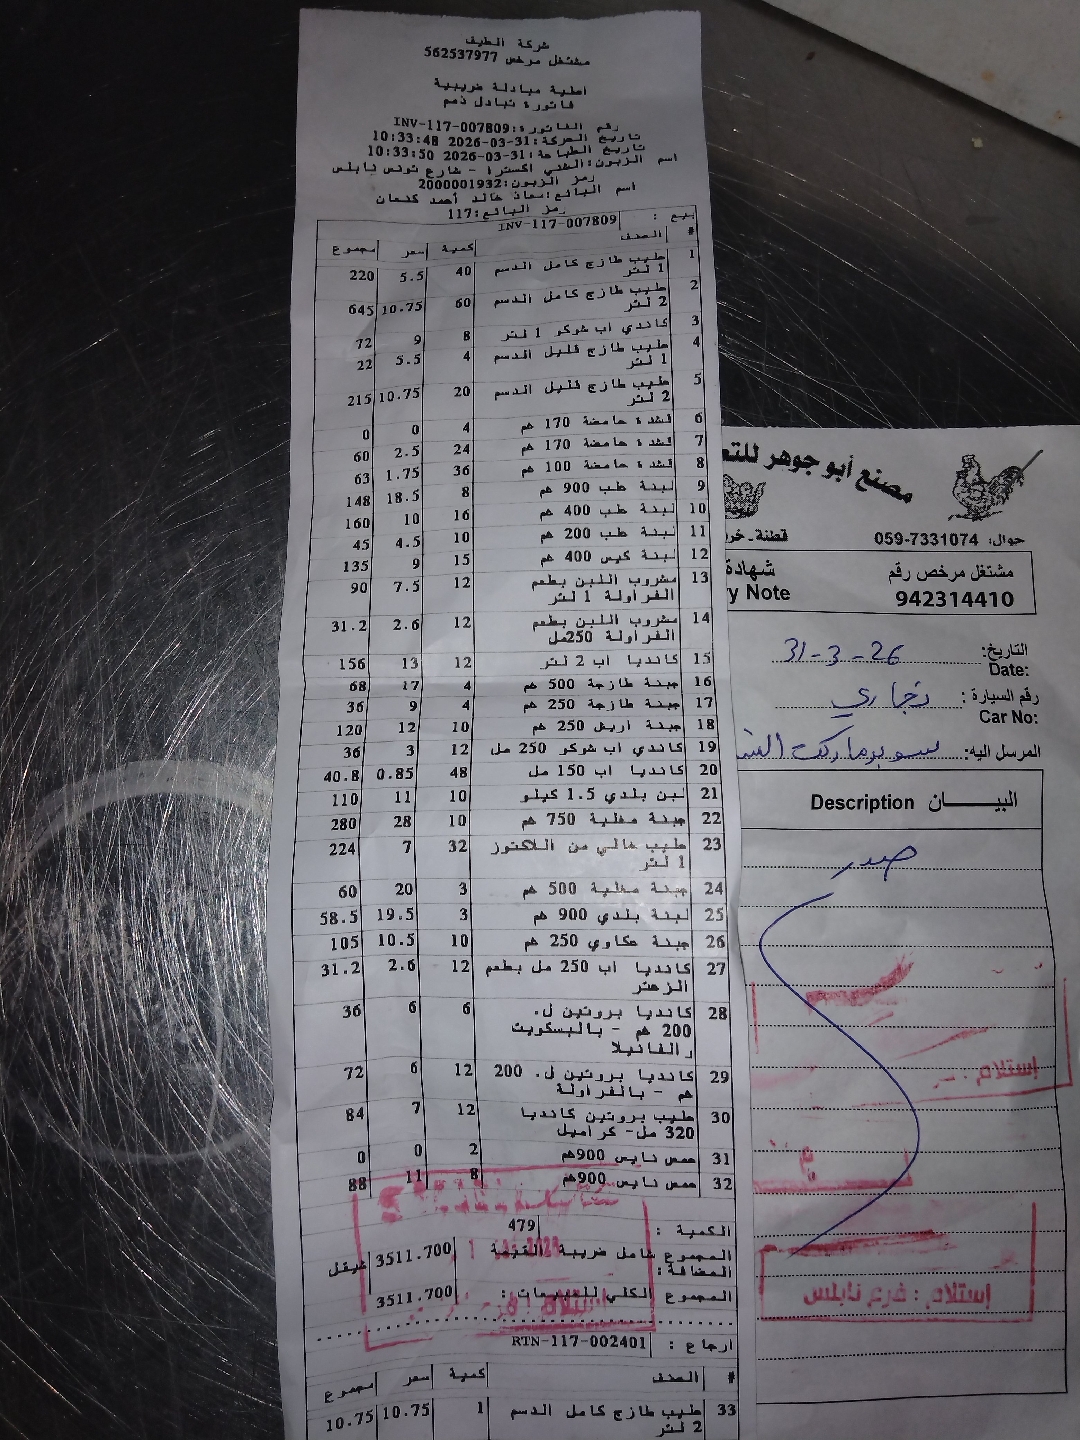 شركة الطيف
مشتغل مرخص 562537977
اصلية مبادلة ضريبية
فاتورة تبادل ذمم
رقم الفاتورة: INV-117-007809
تاريخ الحركة: 2026-03-31 10:33:48
تاريخ الطباعة: 2026-03-31 10:33:50
اسم الزبون: الشني اكسترا - شارع تونس نابلس
رمز الزبون: 2000001932
اسم البائع: معاذ خالد أحمد كنعان
رمز البائع: 117
بيع : INV-117-007809
# الصنف كمية سعر مجموع
1 حليب طازج كامل الدسم 40 5.5 220
1 لتر
2 حليب طازج كامل الدسم 60 10.75 645
2 لتر
3 كاندي اب شوكو 1 لتر 8 9 72
4 حليب طازج قليل الدسم 4 5.5 22
1 لتر
5 حليب طازج قليل الدسم 20 10.75 215
2 لتر
6 قشدة حامضة 170 غم 4 0 0
7 قشدة حامضة 170 غم 24 2.5 60
8 قشدة حامضة 100 غم 36 1.75 63
9 لبنة علب 900 غم 8 18.5 148
10 لبنة علب 400 غم 16 10 160
11 لبنة علب 200 غم 10 4.5 45
12 لبنة كيس 400 غم 15 9 135
13 مشروب اللبن بطعم 12 7.5 90
الفراولة 1 لتر
14 مشروب اللبن بطعم 12 2.6 31.2
الفراولة 250مل
15 كانديا اب 2 لتر 12 13 156
16 جبنة طازجة 500 غم 4 17 68
17 جبنة طازجة 250 غم 4 9 36
18 جبنة اريش 250 غم 10 12 120
19 كاندي اب شوكو 250 مل 12 3 36
20 كانديا اب 150 مل 48 0.85 40.8
21 لبن بلدي 1.5 كيلو 10 11 110
22 جبنة مغلية 750 غم 10 28 280
23 حليب خالي من اللاكتوز 32 7 224
1 لتر
24 جبنة مغلية 500 غم 3 20 60
25 لبنة بلدي 900 غم 3 19.5 58.5
26 جبنة عكاوي 250 غم 10 10.5 105
27 كانديا اب 250 مل بطعم 12 2.6 31.2
الزعتر
28 كانديا بروتين ل. 6 6 36
200 غم - بالبسكويت
والفانيلا
29 كانديا بروتين ل. 200 12 6 72
غم - بالفراولة
30 حليب بروتين كانديا 12 7 84
320 مل- كراميل
31 حمص نايس 900غم 2 0 0
32 حمص نايس 900غم 8 11 88
الكمية : 479
المجموع شامل ضريبة القيمة 3511.700 شيقل
المضافة:
المجموع الكلي للمبيعات: 3511.700
ارجاع : RTN-117-002401
# الصنف كمية سعر مجموع
33 حليب طازج كامل الدسم 1 10.75 10.75
2 لتر
مصنع أبو جوهر
قطنة
جوال: 059-7331074
مشتغل مرخص رقم
942314410
شهادة
Note
التاريخ: 31-3-26
Date:
رقم السيارة : تجاري
Car No:
المرسل اليه: سوبرماركت
البيـــــان Description
صدر
إستلام
إستلام : فرع نابلس